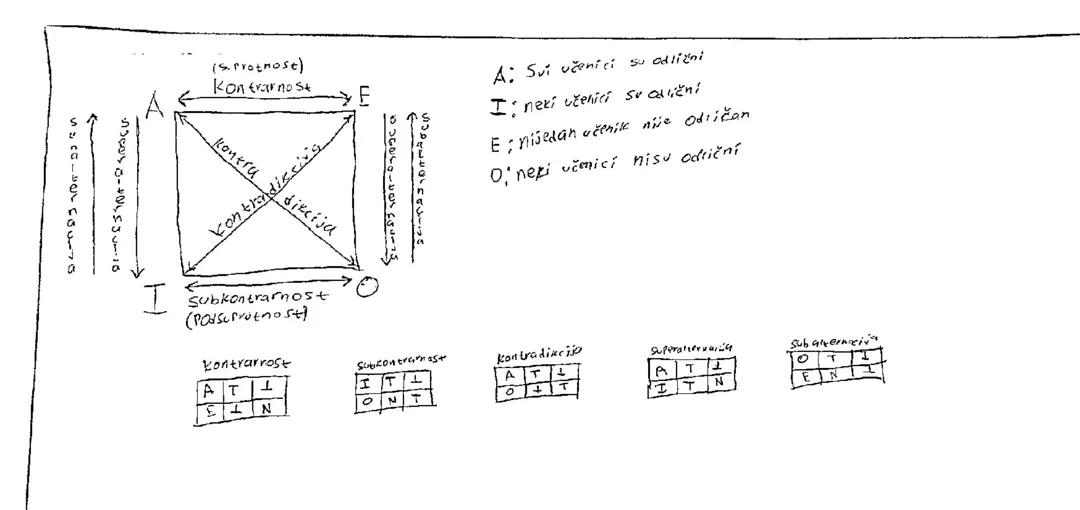 (suprotnost)
kontrarnost
A
E
Subalternacija
kontra
dikcija
kontradikcija
I
O
subkontrarnost
(podsuprotnost)
A: Svi učenici su odlični
I: neki učenici su odlični
E: nijedan učenik nije odličan
O: neki učenici nisu odlični
kontrarnost
A T ⊥
E ⊥ N
subkontrarnost
I T ⊥
O N T
kontradikcija
A T ⊥
O ⊥ T
superalternacija
A T ⊥
I T N
subalternacija
O T ⊥
E N ⊥